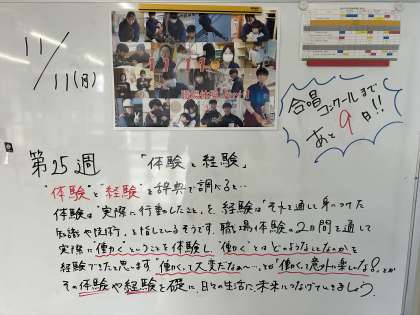 11/11(月)
合唱
コンクールまで
あと9日!!
第25週 「体験と経験」
"体験"と"経験"を辞典で調べると…
体験は"実際に行動したこと"を、経験は"それを通して身につけた
知識や技術"を指しているそうです。職場体験の2日間を通して
実際に"働く"ということを体験し、"働く"とはどのようなことなのかを
経験できたと思います。"働くって大変だなぁ〜"とか"働くって意外に楽しいな?"とか
その体験や経験を礎に、日々の生活に、未来につなげていきましょう。